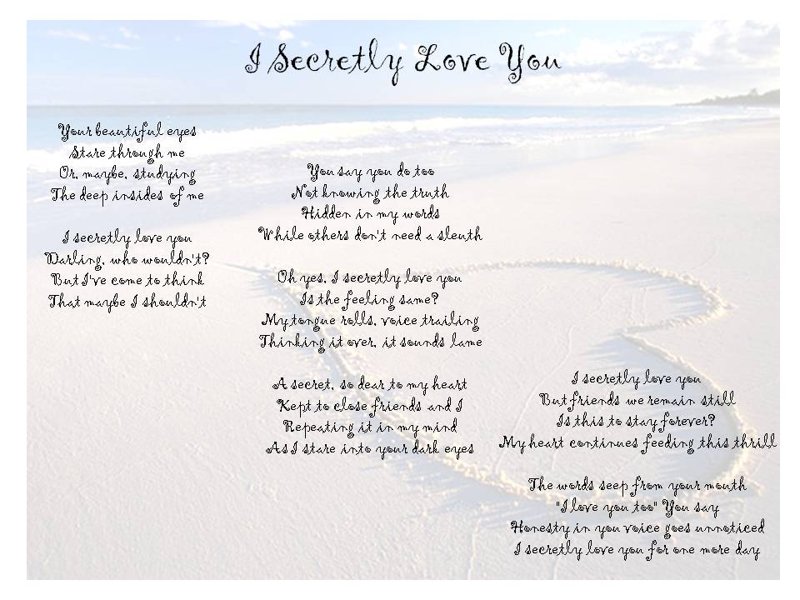 I Secretly Love You
Your beautiful eyes
Stare through me
Or, maybe, studying
The deep insides of me
I secretly love you
Darling, who wouldn't?
But I've come to think
That maybe I shouldn't
You say you do too
Not knowing the truth
Hidden in my words
While others don't need a sleuth
Oh yes, I secretly love you
Is the feeling same?
My tongue rolls, voice trailing
Thinking it over, it sounds lame
A secret, so dear to my heart
Kept to close friends and I
Repeating it in my mind
As I stare into your dark eyes
I secretly love you
But friends we remain still
Is this to stay forever?
My heart continues feeding this thrill
The words seep from your mouth
"I love you too" You say
Honesty in you voice goes unnoticed
I secretly love you for one more day